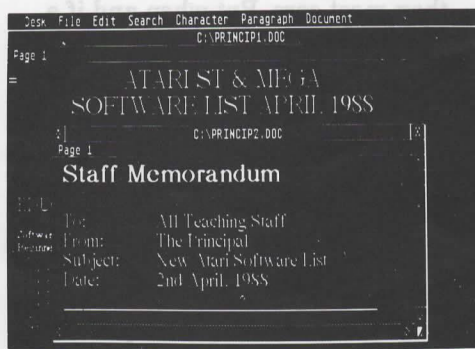 Desk File Edit Search Character Paragraph Document
C:\PRINCIP1.DOC
Page 1
ATARI ST & MEGA
SOFTWARE LIST APRIL 1988
C:\PRINCIP2.DOC
Page 1
Staff Memorandum
To: All Teaching Staff
From: The Principal
Subject: New Atari Software List
Date: 2nd April, 1988